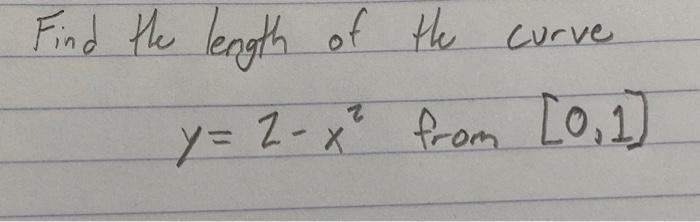 Find the length of the curve
y = 2 - x² from [0,1]